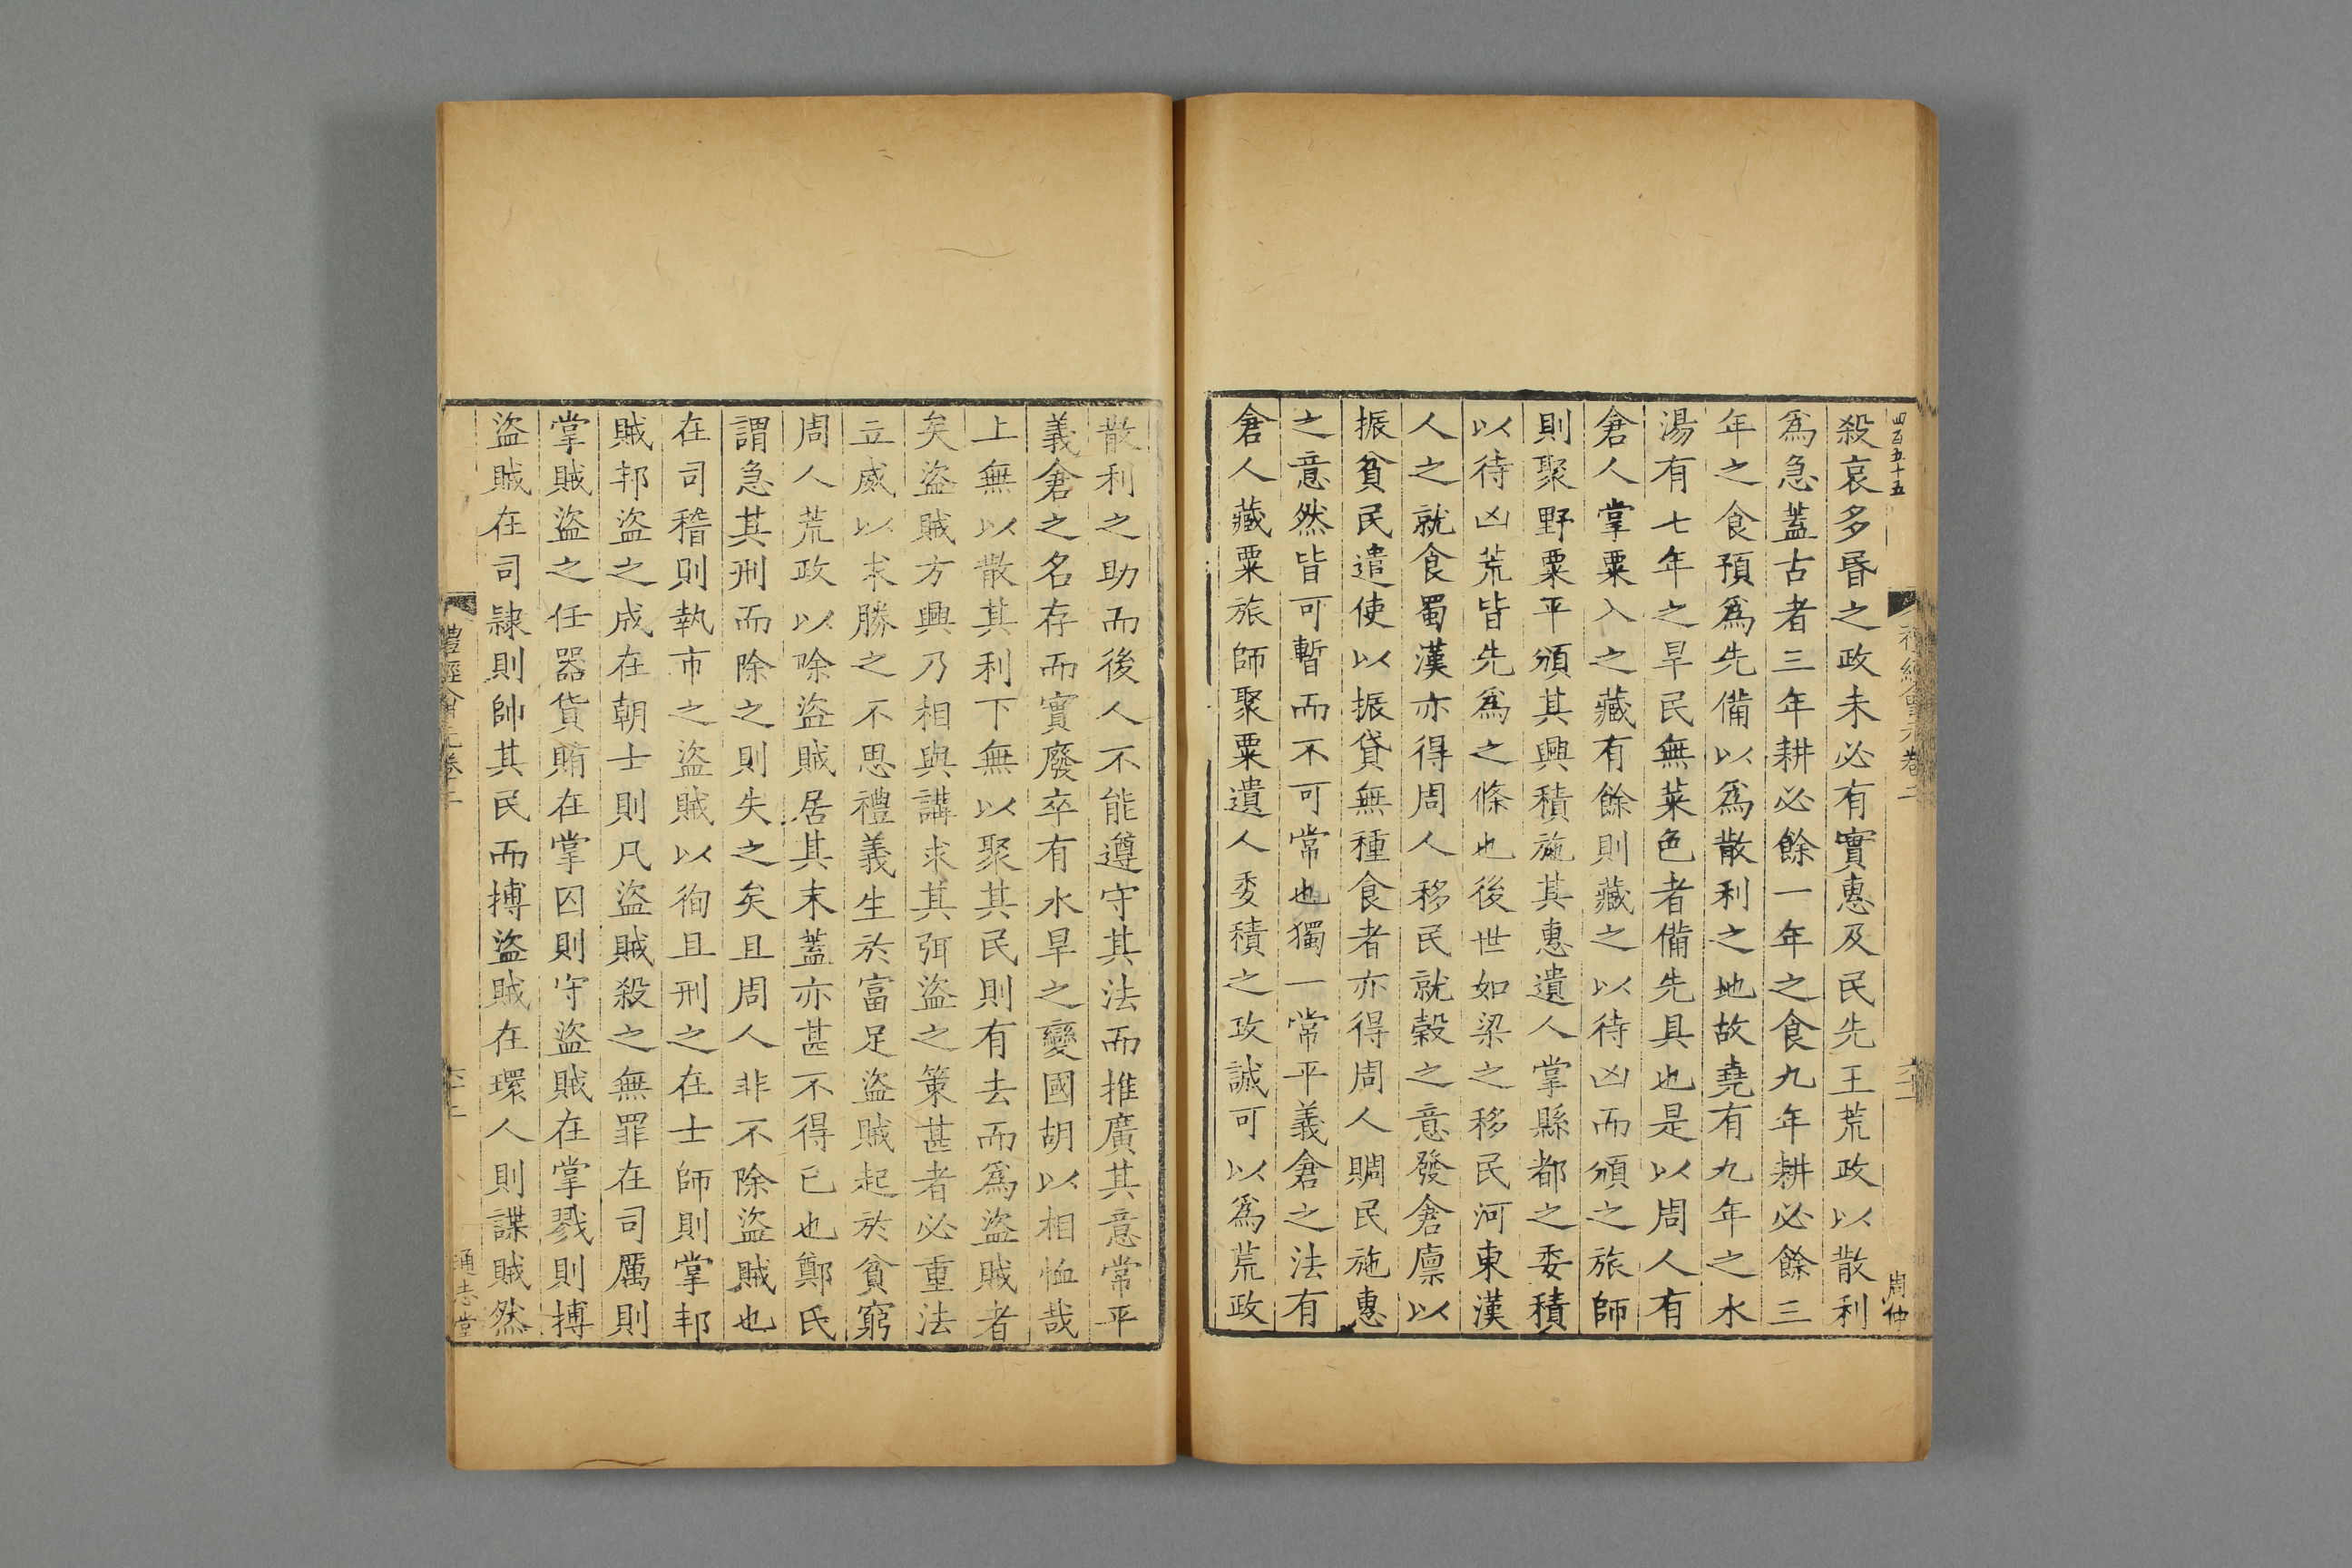 四百五十五
殺哀多昬之政未必有實惠及民先王荒政以散利
爲急蓋古者三年耕必餘一年之食九年耕必餘三
年之食預爲先備以爲散利之地故堯有九年之水
湯有七年之旱民無菜色者備先具也是以周人有
倉人掌粟入之藏有餘則藏之以待凶而頒之旅師
則聚野粟平頒其興積施其惠遺人掌縣都之委積
以待凶荒皆先爲之條也後世如梁之移民河東漢
人之就食蜀漢亦得周人移民就榖之意發倉廪以
振貧民遣使以振貸無種食者亦得周人賙民施惠
之意然皆可暫而不可常也獨一常平義倉之法有
倉人藏粟旅師聚粟遺人委積之政誠可以爲荒政
周仲
散利之助而後人不能遵守其法而推廣其意常平
義倉之名存而實廢卒有水旱之變國胡以相恤哉
上無以散其利下無以聚其民則有去而爲盜賊者
矣盜賊方興乃相與講求其弭盜之策甚者必重法
立威以求勝之不思禮義生於富足盜賊起於貧窮
周人荒政以除盜賊居其末蓋亦甚不得已也鄭氏
謂急其刑而除之則失之矣且周人非不除盜賊也
在司稽則執市之盜賊以徇且刑之在士師則掌邦
賊邦盜之成在朝士則凡盜賊殺之無罪在司厲則
掌賊盜之任器貨賄在掌囚則守盜賊在掌戮則搏
盜賊在司隷則帥其民而搏盜賊在環人則諜賊然
禮經會元卷二
通志堂